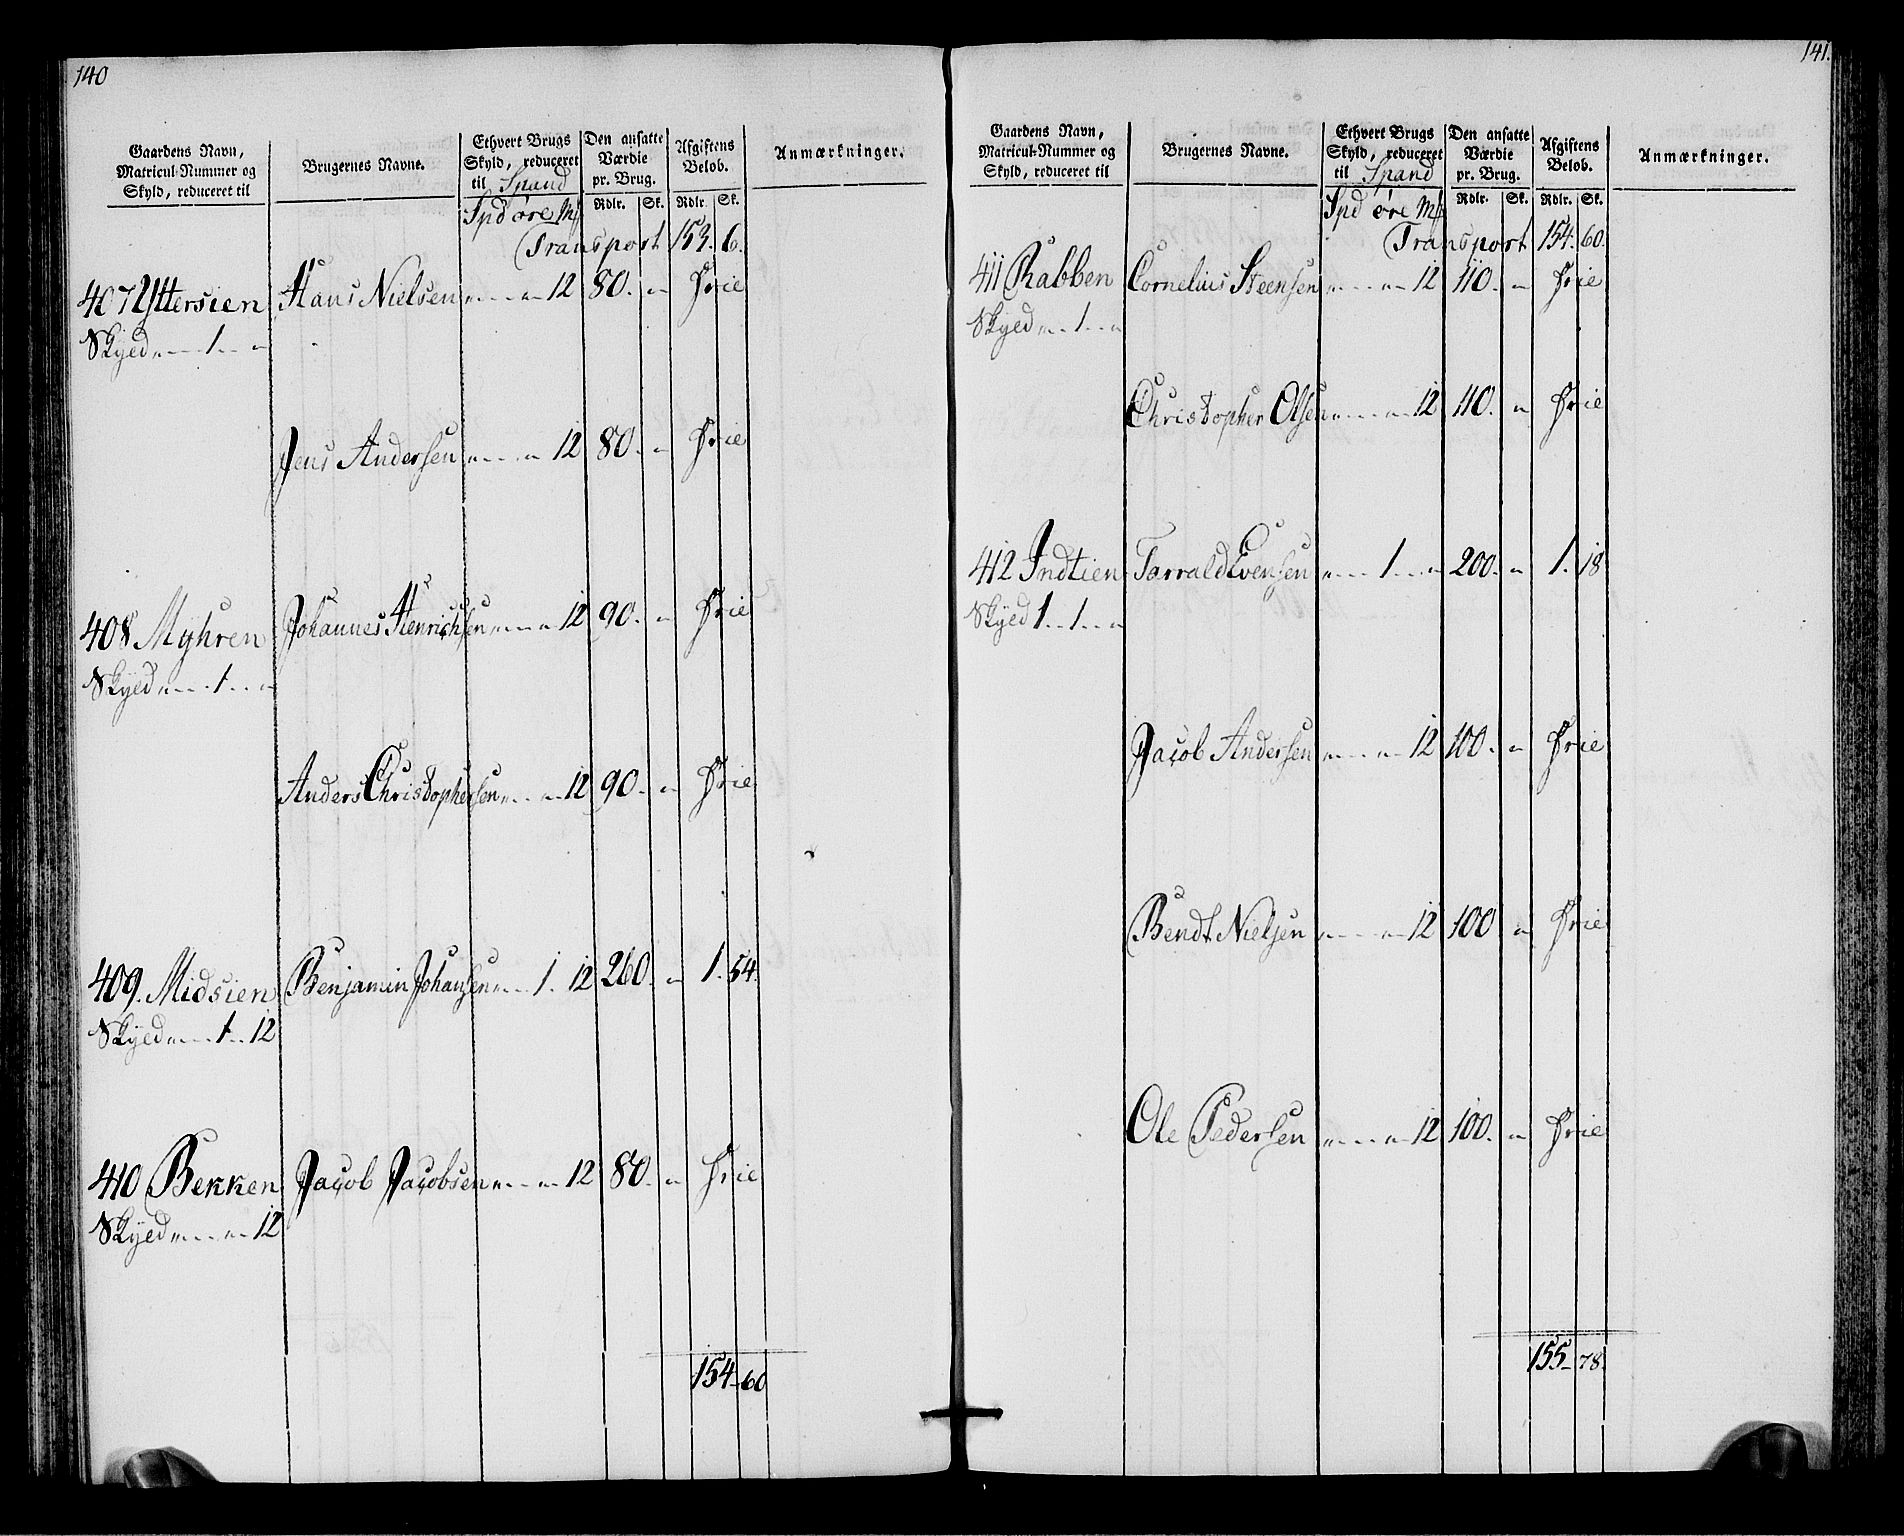 140
Gaardens Navn, Matricul-Nummer og Skyld, reduceret til | Brugernes Navne. | Ethvert Brugs Skyld, reduceret til Spand | Den ansatte Værdie pr. Brug. | Afgiftens Beløb. | Anmærkninger.
Spd øre Mk | Rdlr. | Sk. | Rdlr. | Sk.
Transport 153. 6.
407 Yttersien Hans Nielsen „ - - „ - 12 80. - „ Frie
Skyed „ - - - 1 - - „
Jens Andersen „ - - - „ - 12 80. - „ Frie
408 Myhren Johannes Henrichsen „ - - „ - 12 90. - „ Frie
Skyed „ - - - 1 - - „
Anders Christophersen „ - - „ - 12 90. - „ Frie
409. Midsien Benjamin Johansen „ - - 1. 12 260. - „ 1. 54.
Skyed „ - - - 1 - - 12
410 Bekken Jacob Jacobsen „ - - „ - 12 80. - „ Frie
Skyed „ - - - „ - 12
154 - 60
141.
Gaardens Navn, Matricul-Nummer og Skyld, reduceret til | Brugernes Navne. | Ethvert Brugs Skyld, reduceret til Spand | Den ansatte Værdie pr. Brug. | Afgiftens Beløb. | Anmærkninger.
Spd øre Mk | Rdlr. | Sk. | Rdlr. | Sk.
Transport 154. 60.
411 Rabben Cornelius Steensen „ - - - „ - 12 110. - „ Frie
Skyed „ - - 1 - - „
Christopher Olsen „ - - - „ - 12 110. - „ Frie
412 Indtien Tarrald Evensen „ - - - 1 - - - „ 200. - „ 1. 18
Skyed 1 - - 1 - - „
Jacob Andersen „ - - - „ - 12 100. - „ Frie
Bendt Nielsen „ - - - „ - 12 100 - „ Frie
Ole Pedersen „ - - - „ - 12 100. - „ Frie
155 - 78.